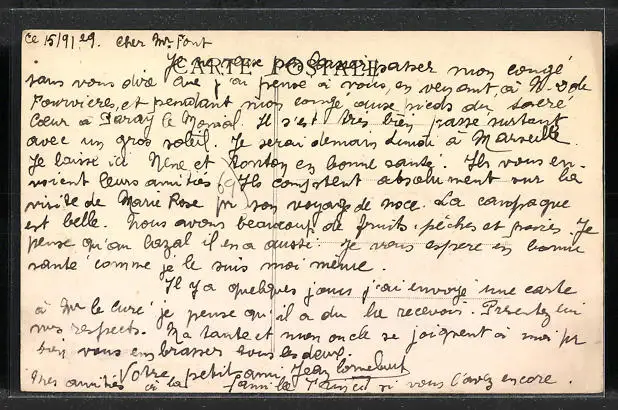 Ce 15/9/29. Cher Mr Font
CARTE POSTALE
Je ne veux pas laisser passer mon congé
sans vous dire que j'ai pensé à vous, en venant, à N. D de
Fourvières, et pendant mon congé aux pieds du Sacré
Cœur à Paray le Monial. Il s'est très bien passé surtout
avec un gros soleil. Je serai demain Lundi à Marseille.
Je laisse ici Néné et Tonton en bonne santé. Ils vous en-
voient leurs amitiés. Ils comptent absolument sur la
visite de Marie Rose pr son voyage de noce. La campagne
est belle. Nous avons beaucoup de fruits, pêches et poires. Je
pense qu'au Cazal il en a aussi. Je vous espère en bonne
santé comme je le suis moi même.
Il y a quelques jours j'ai envoyé une carte
à Mr le curé je pense qu'il a du la recevoir. Présentez lui
mes respects. Ma tante et mon oncle se joignent à moi pr
bien vous embrasser tous les deux.
Votre petit ami, Jean
Mes amitiés à la famille si vous l'avez encore.